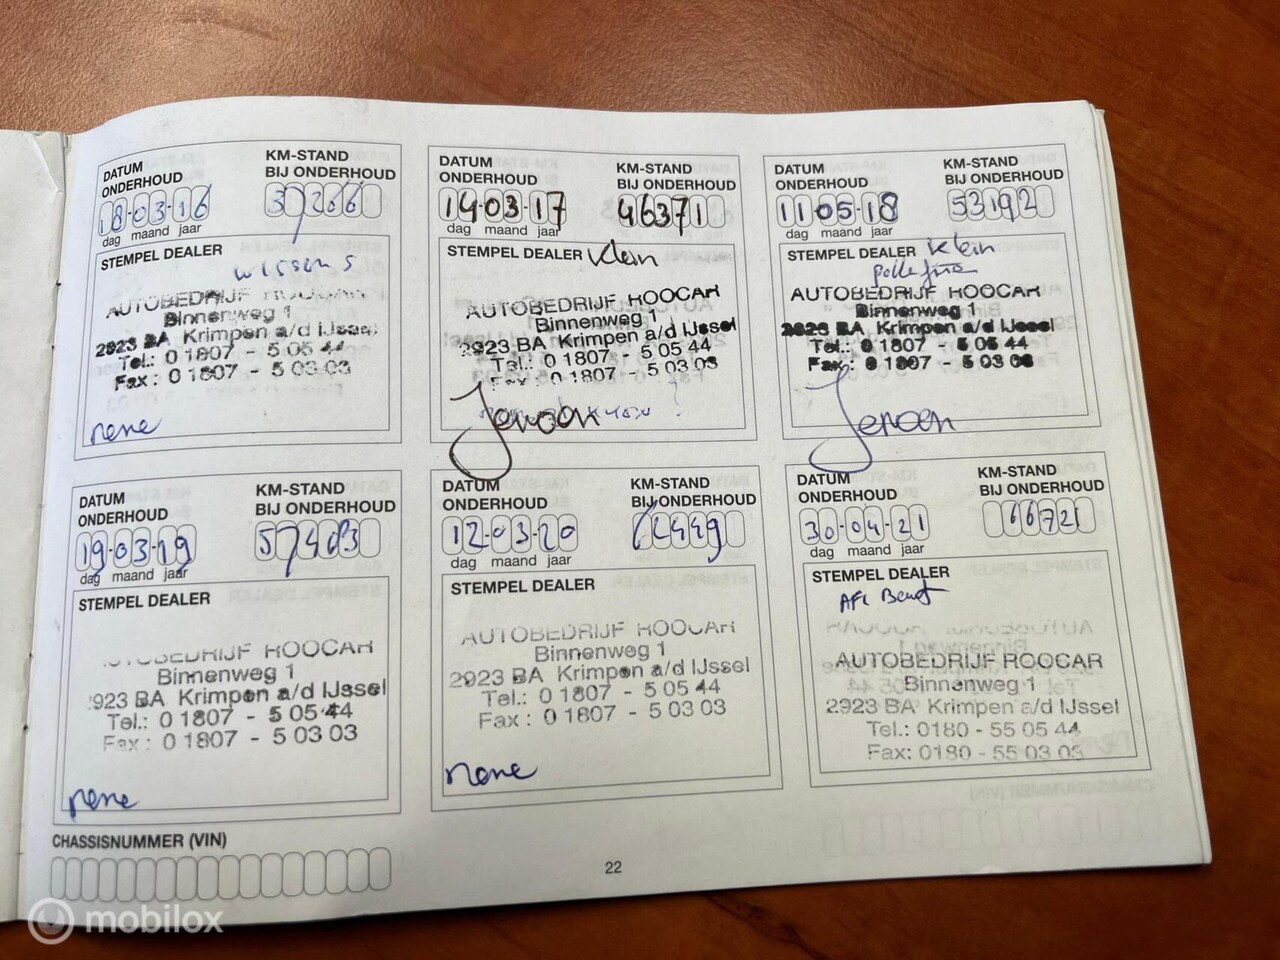 DATUM
ONDERHOUD
KM-STAND
BIJ ONDERHOUD
18-03-16
37266
dag maand jaar
STEMPEL DEALER
AUTOBEDRIJF HOOCAR
Binnenweg 1
2923 BA Krimpen a/d IJssel
Tel.: 0 1807 - 5 05 44
Fax : 0 1807 - 5 03 03
rene
DATUM
ONDERHOUD
KM-STAND
BIJ ONDERHOUD
14-03-17
46371
dag maand jaar
STEMPEL DEALER Klein
AUTOBEDRIJF HOOCAR
Binnenweg 1
2923 BA Krimpen a/d IJssel
Tel.: 0 1807 - 5 05 44
Fax : 0 1807 - 5 03 03
Jeroen
DATUM
ONDERHOUD
KM-STAND
BIJ ONDERHOUD
11-05-18
53192
dag maand jaar
STEMPEL DEALER Klein
AUTOBEDRIJF HOOCAR
Binnenweg 1
2923 BA Krimpen a/d IJssel
Tel.: 0 1807 - 5 05 44
Fax : 0 1807 - 5 03 03
Jeroen
DATUM
ONDERHOUD
KM-STAND
BIJ ONDERHOUD
19-03-19
57403
dag maand jaar
STEMPEL DEALER
AUTOBEDRIJF HOOCAR
Binnenweg 1
2923 BA Krimpen a/d IJssel
Tel.: 0 1807 - 5 05 44
Fax : 0 1807 - 5 03 03
rene
DATUM
ONDERHOUD
KM-STAND
BIJ ONDERHOUD
12-03-20
62449
dag maand jaar
STEMPEL DEALER
AUTOBEDRIJF HOOCAR
Binnenweg 1
2923 BA Krimpen a/d IJssel
Tel.: 0 1807 - 5 05 44
Fax : 0 1807 - 5 03 03
rene
DATUM
ONDERHOUD
KM-STAND
BIJ ONDERHOUD
30-04-21
66721
dag maand jaar
STEMPEL DEALER
AFL Beurt
AUTOBEDRIJF HOOCAR
Binnenweg 1
2923 BA Krimpen a/d IJssel
Tel.: 0180 - 55 05 44
Fax: 0180 - 55 03 03
CHASSISNUMMER (VIN)
22
mobilox